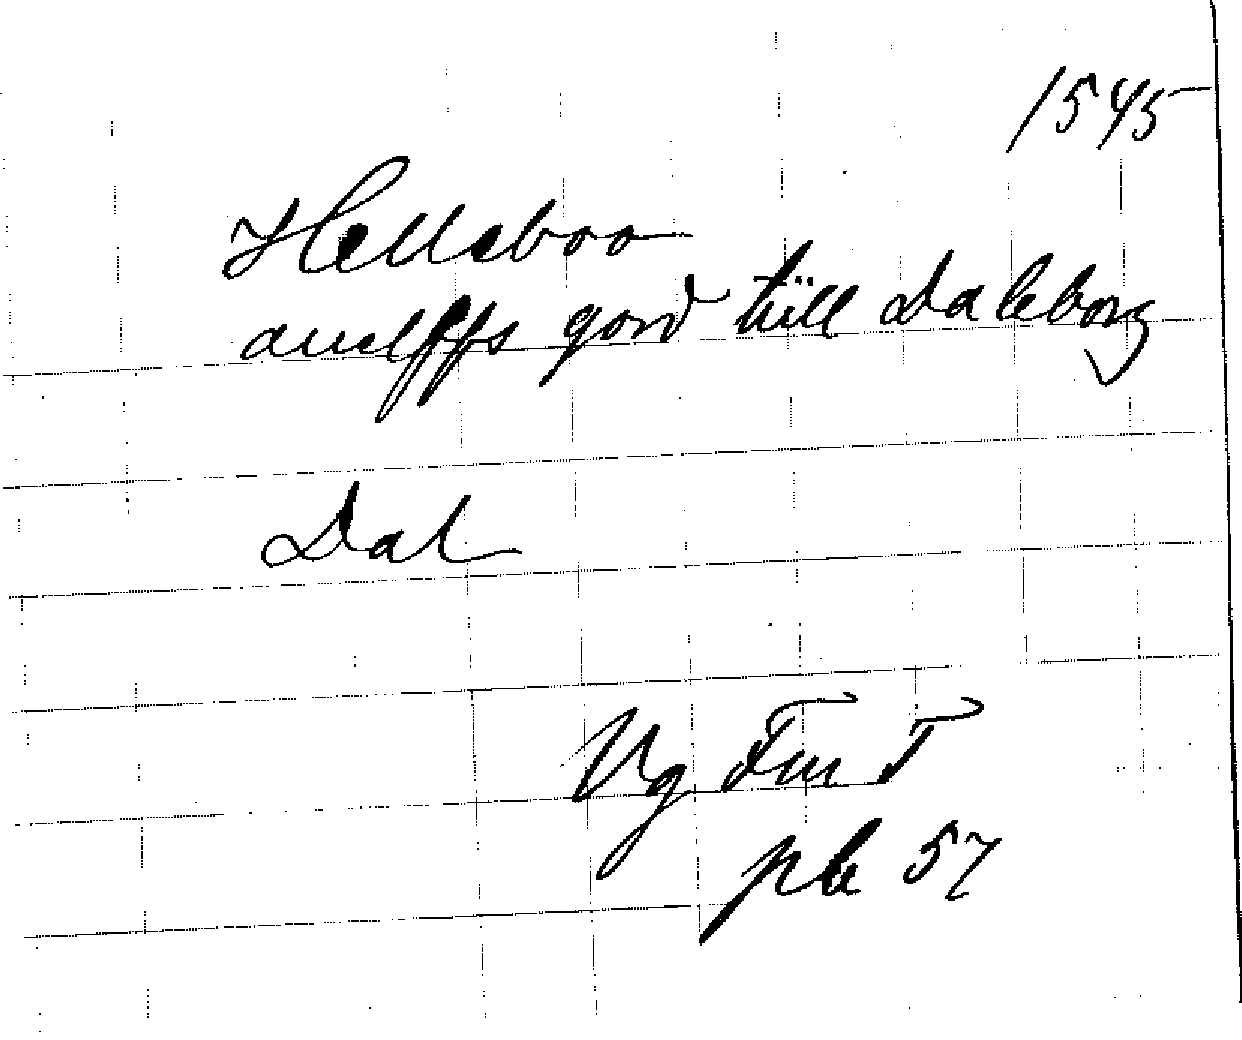 1545
Helleboo
auelffs gord tüll Daleborg
Dal
Vg Fm T
pk 57